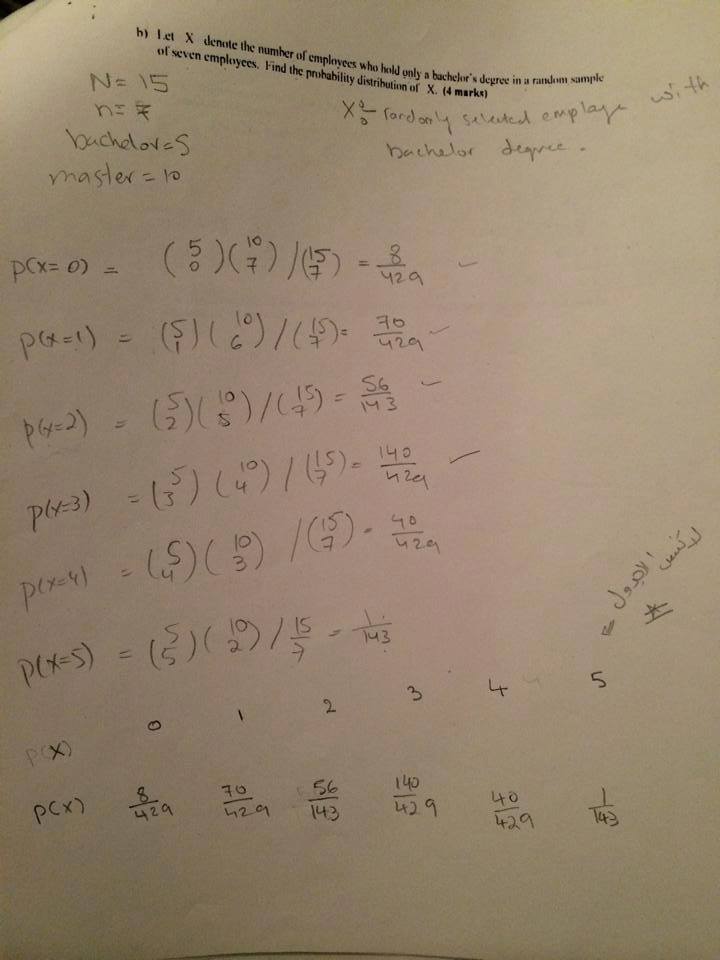 b) Let X denote the number of employees who hold only a bachelor's degree in a random sample
of seven employees. Find the probability distribution of X. (4 marks)
N = 15
n = 7
bachelor = 5
master = 10
X : randomly selected employe with
bachelor degree.
p(x=0) = (5 0)(10 7)/(15 7) = 8/429 ✓
p(x=1) = (5 1)(10 6)/(15 7) = 70/429 ✓
p(x=2) = (5 2)(10 5)/(15 7) = 56/143 ✓
p(x=3) = (5 3)(10 4)/(15 7) = 140/429 ✓
p(x=4) = (5 4)(10 3)/(15 7) = 40/429
p(x=5) = (5 5)(10 2)/15/7 = 1/143
الجدول
p(X) 0 1 2 3 4 5
p(x) 8/429 70/429 56/143 140/429 40/429 1/143